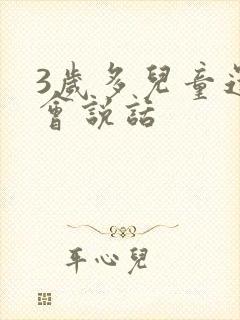 3歲多兒童還
會說話
年心兒